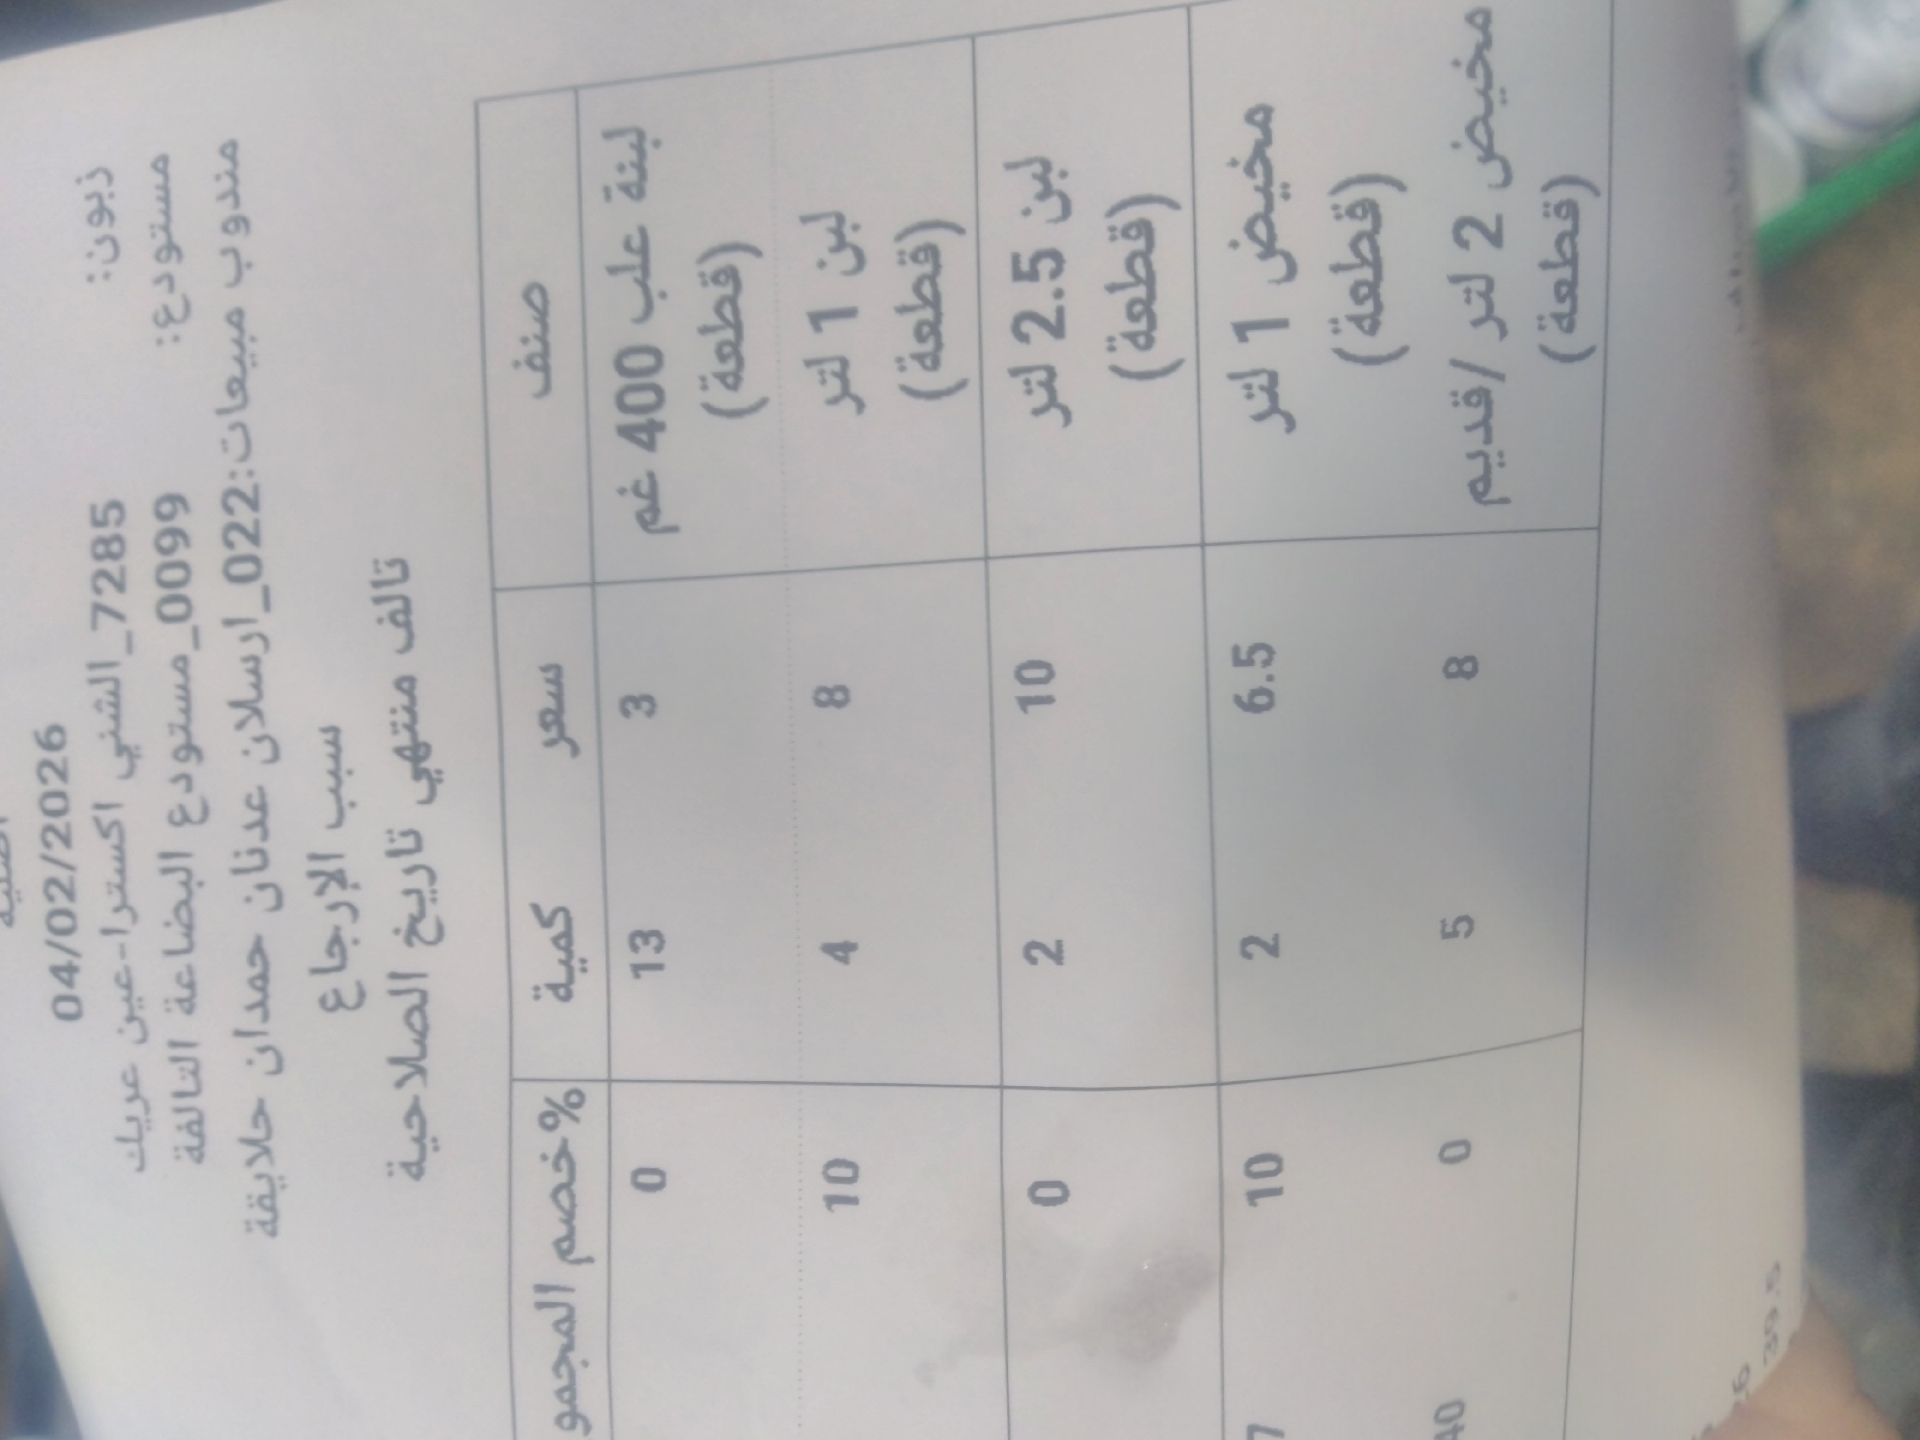 04/02/2026
زبون: 7285_الشني اكسترا-عين عريك
مستودع: 0099_مستودع البضاعة التالفة
مندوب مبيعات:022_ارسلان عدنان حمدان حلايقة
سبب الإرجاع
تالف منتهي تاريخ الصلاحية
صنف سعر كمية %خصم المجمو
لبنة علب 400 غم (قطعة) 3 13 0
لبن 1 لتر (قطعة) 8 4 10
لبن 2.5 لتر (قطعة) 10 2 0
مخيض 1 لتر (قطعة) 6.5 2 10 7
مخيض 2 لتر /قديم (قطعة) 8 5 0 40
39.5